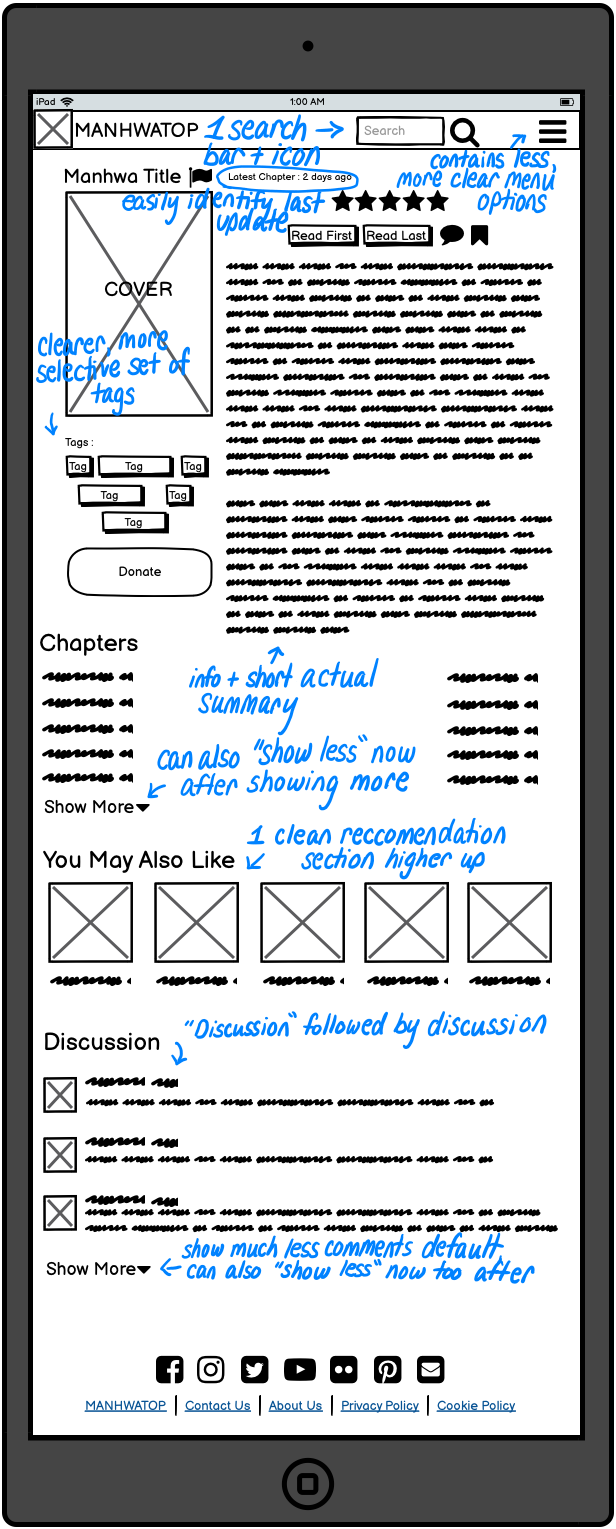 iPad 1:00 AM
MANHWATOP 1 search → Search
bar + icon
contains less,
more clear menu
options
Manhwa Title Latest Chapter : 2 days ago
easily identify last
update
Read First Read Last
COVER
clearer, more
selective set of
tags
Tags :
Tag Tag Tag
Tag Tag
Tag
Donate
info + short actual
summary
Chapters
can also "show less" now
after showing more
Show More
1 clean reccomendation
section higher up
You May Also Like
"Discussion" followed by discussion
Discussion
show much less comments default,
can also "show less" now too after
Show More
MANHWATOP | Contact Us | About Us | Privacy Policy | Cookie Policy